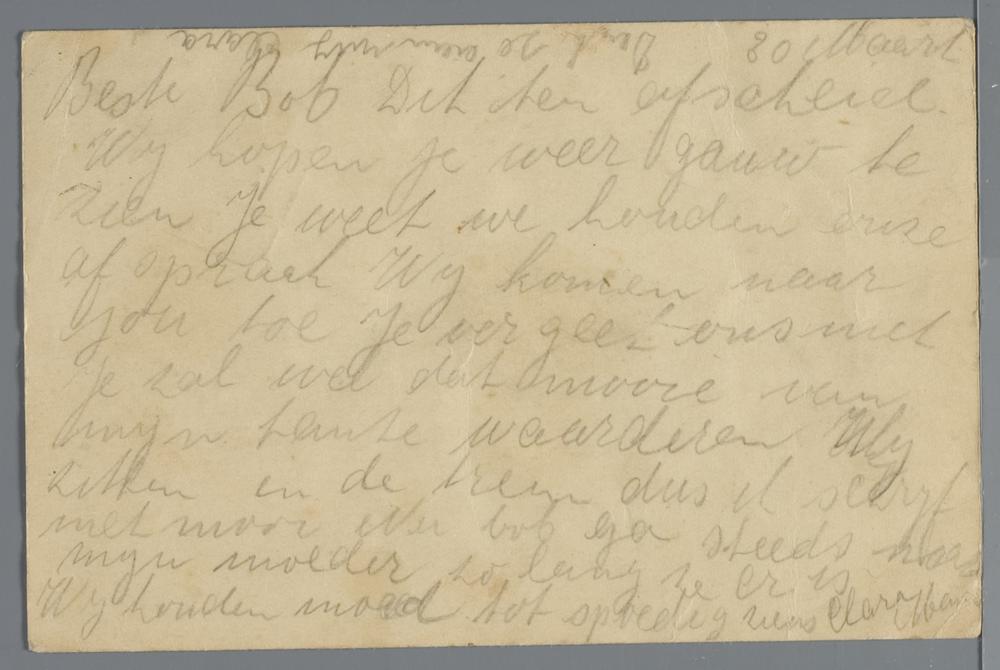 30 Maart
Beste Bob Dit ten afscheid.
Wy hopen je weer gauw te
zien Je weet we houden onze
afspraak Wy komen naar
jou toe Je vergeet ons niet
Je zal wel dat mooie van
myn tante waarderen Wy
zitten in de trein dus ik schryf
niet mooi Nu bob ga steeds naar
myn moeder zo lang ze er is
Wy houden moed tot spoedig ziens Clara
Clara